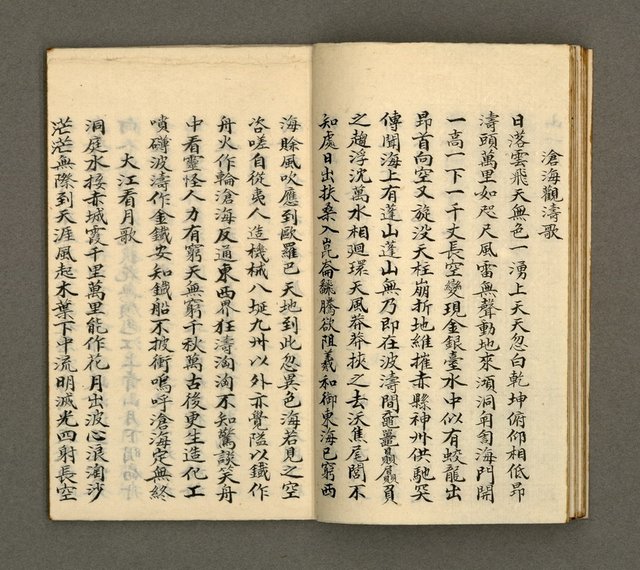 滄海觀濤歌
日落雲飛天無色一湧上天天忽白乾坤俯仰相低昂
濤頭萬里如咫尺風雷無聲動地來澒洞匉訇海門開
一高一下一千丈長空變現金銀臺水中似有蛟龍出
昂首向空又旋沒天柱崩折地維摧赤縣神州供馳突
傳聞海上有蓬山蓬山無乃即在波濤間黿鼉贔屭負
之趨浮沈萬水相迴環天風莽莽挾之去沃焦尾閭不
知處日出扶桑入崑崙騰欲阻羲和御東海已窮西
海賒風吹應到歐羅巴天地到此忽異色海若見之空
咨嗟自從夷人造機械八埏九州以外亦覺隘以鐵作
舟火作輪滄海反通東西界狂濤淘淘不知驚談笑舟
中看靈怪人力有窮天無窮千秋萬古後更生造化工
噴礴波濤作金鐵安知鐵船不披衝嗚呼滄海定無終
大江看月歌
洞庭水接赤城霞千里萬里能作花月出波心浪淘沙
茫茫無際到天涯風起木葉下中流明滅光四射長空